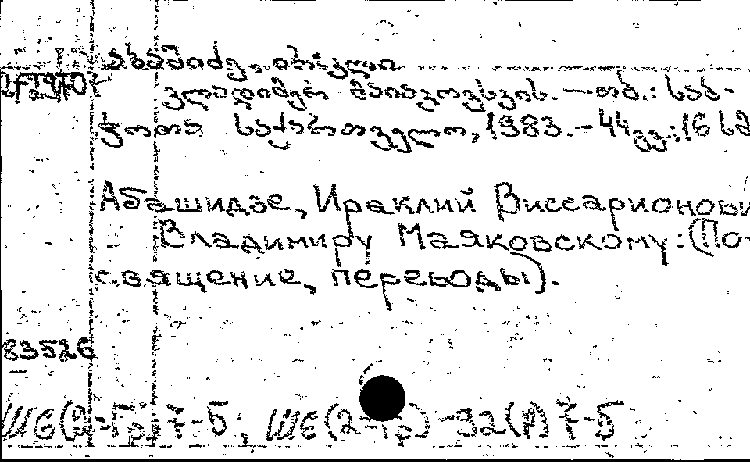 აბაშიძე, ირაკლი
ვლადიმერ მაიაკოვსკის. — თბ.: საბ-
ჭოთა საქართველო, 1983. - 44 გვ.; 16 სმ
Абашидзе, Ираклий Виссарионови
Владимиру Маяковскому: (По-
священие, переводы).
83526
Ш6(2=Гр)7-5; Ш6(2=Гр)-92(А)7-5